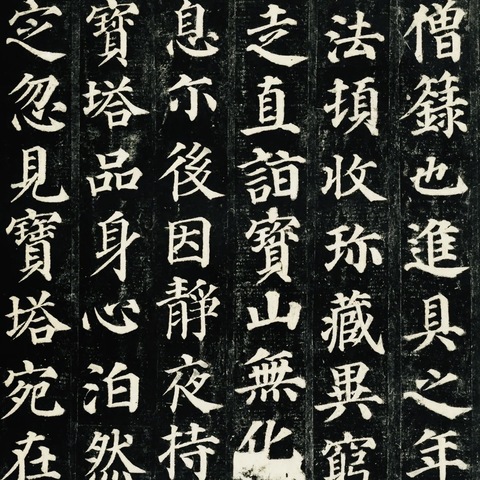 僧籙也進具之年
法頓收珍藏異窮
走直詣寶山無化
息尒後因靜夜持
寶塔品身心泊然
定忽見寶塔宛在